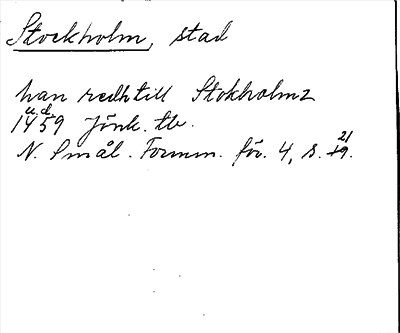 Stockholm, stad
han redh till Stokholmz
u.d.
1459 Jönk. tb.
N. Smål. Fornm. för. 4, s. 19. 21